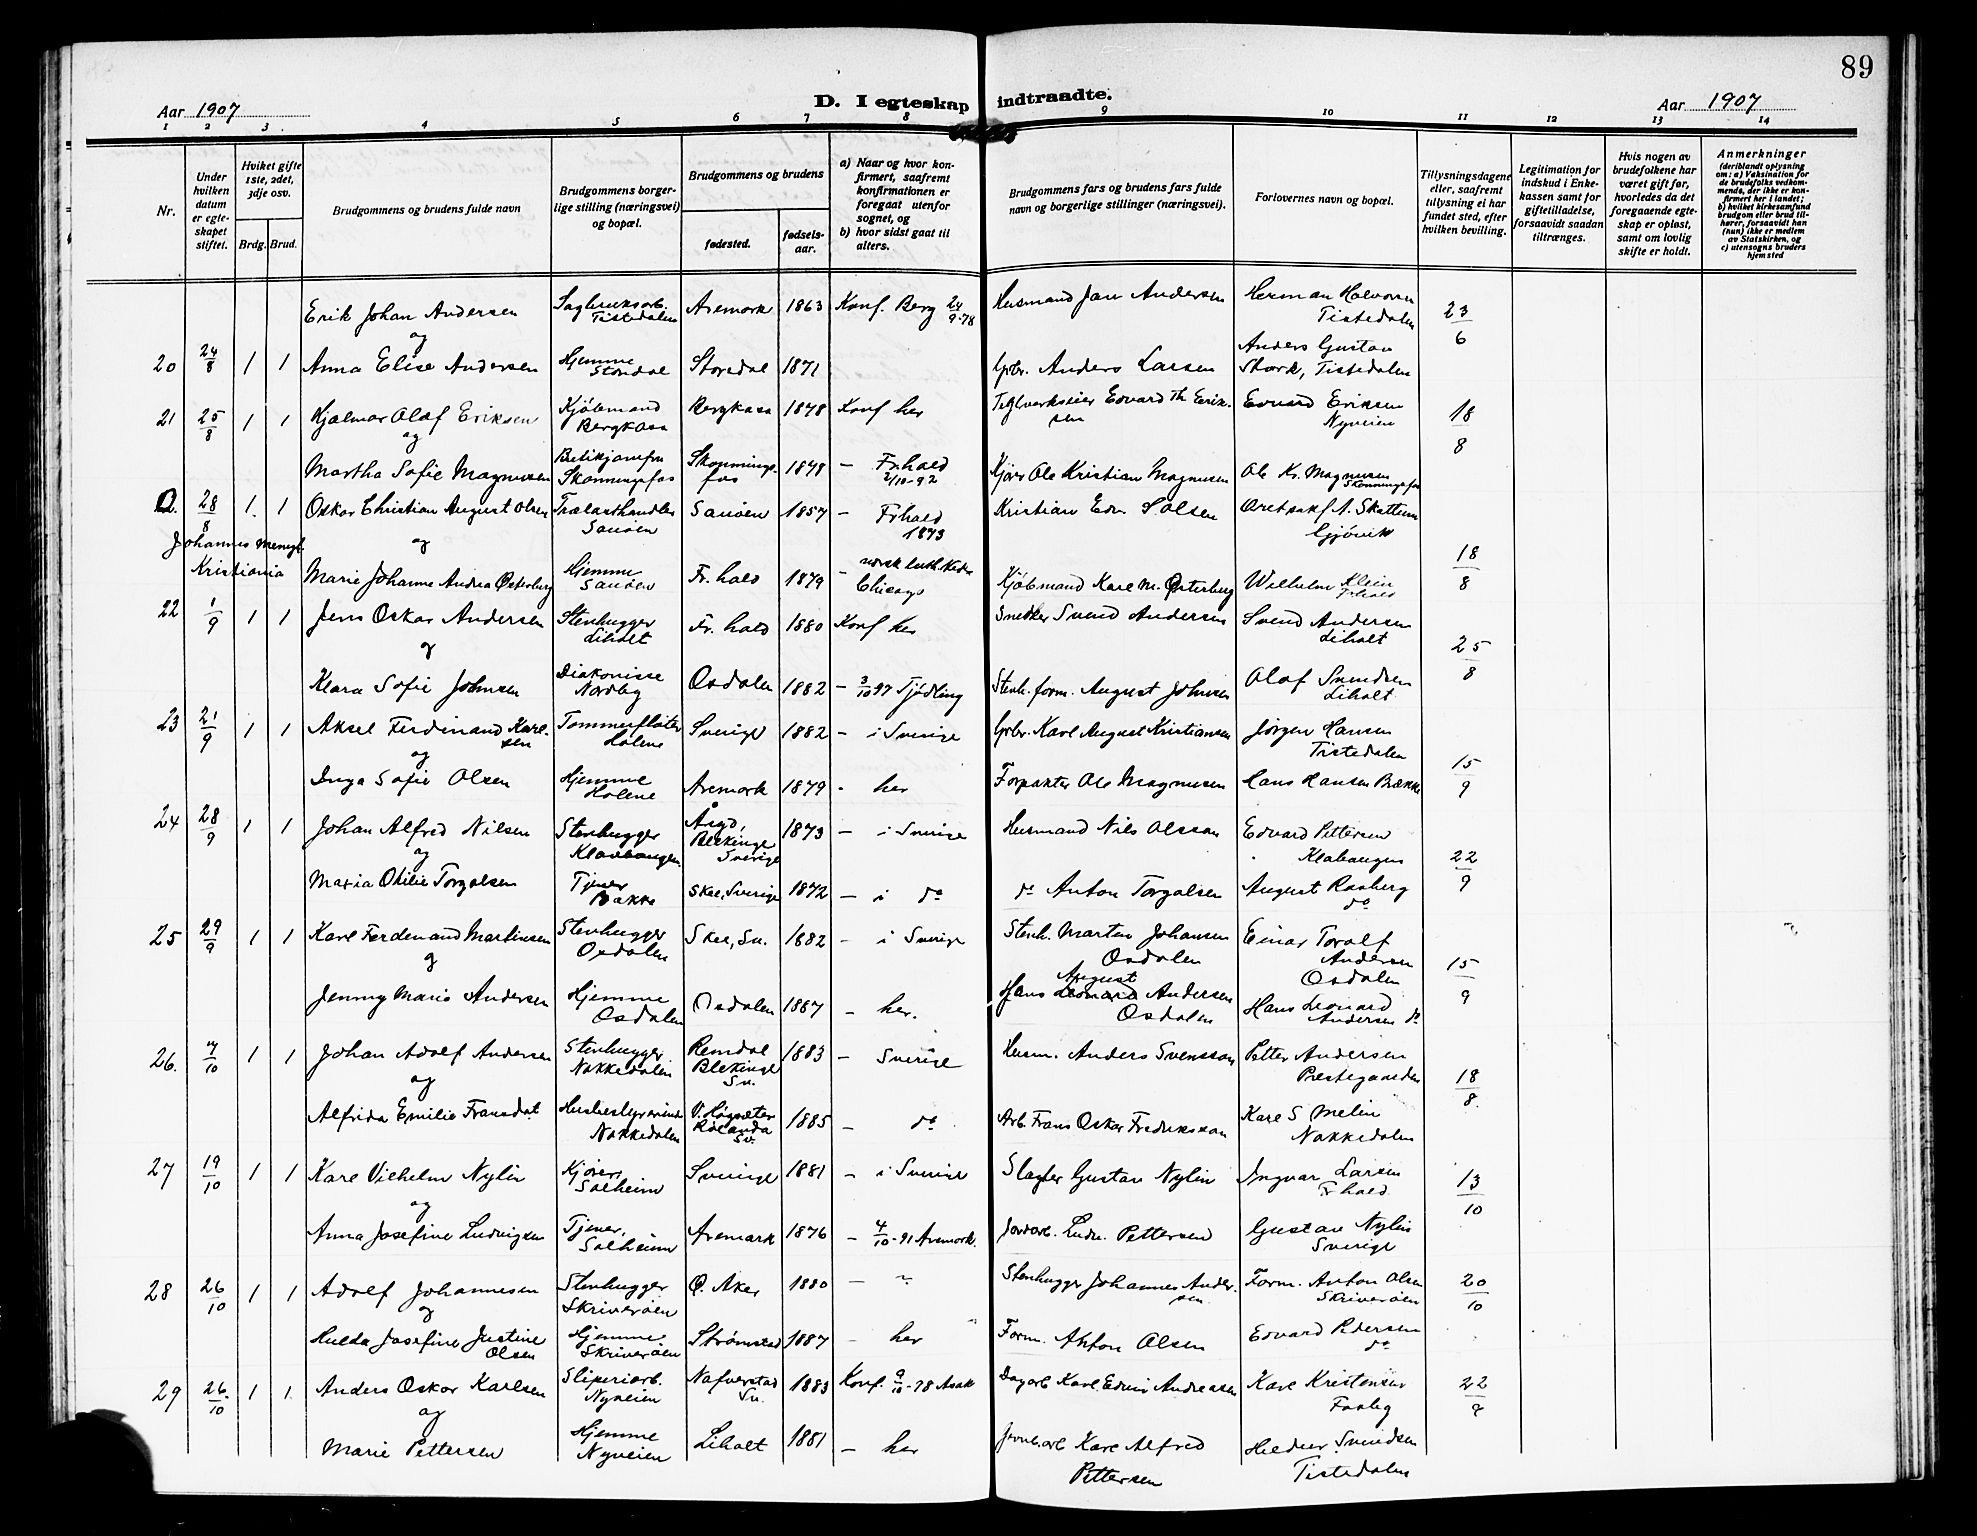 89
D. I egteskap indtraadte.
Aar 1907
Aar 1907
1 2 3 4 5 6 7 8 9 10 11 12 13 14
Nr.
Under hvilken datum er egteskapet stiftet.
Hviket gifte 1ste, 2det, 3dje osv.
Brdg. Brud.
Brudgommens og brudens fulde navn
Brudgommens borgerlige stilling (næringsvei) og bopæl.
Brudgommens og brudens
fødested.
fødselsaar.
a) Naar og hvor konfirmert, saafremt konfirmationen er foregaat utenfor sognet, og
b) hvor sidst gaat til alters.
Brudgommens fars og brudens fars fulde navn og borgerlige stillinger (næringsvei).
Forlovernes navn og bopæl.
Tillysningsdagene eller, saafremt tillysning ei har fundet sted, efter hvilken bevilling.
Legitimation for indskud i Enkekassen samt for giftetilladelse, forsaavidt saadan tiltrænges.
Hvis nogen av brudefolkene har været gift før, hvorledes da det foregaaende egteskap er opløst, samt om lovlig skifte er holdt.
Anmerkninger
(deriblandt oplysning om: a) Vaksination for de brudefolks vedkommende, der ikke er konfirmert her i landet; b) hvilket kirkesamfund brudgom eller brud tilhører, forsaavidt han (hun) ikke er medlem av Statskirken, og c) utensogns bruders hjemsted
Erik Johan Andersen Sagbruksarb. Tistedalen Aremark 1863 Konf. Berg 24/9-78 Husmand Jan Andersen Herman Halvorsen Tistedalen 23/6
og
20 24/8 1 1 Anna Elise Andersen Hjemme Stordal Storedal 1871 Gbr. Anders Larsen Anders Gustav Stark, Tistedalen
21 25/8 1 1 Hjalmar Olaf Eriksen Kjöbmand Bergkasa Bergkasa 1878 Konf her Teglverkseier Edvard Th Eriksen Edvard Eriksen Nyveien 18/8
og
Martha Sofie Magnussen Butikjomfru Skonningsfos Skonningsfos 1878 — Frhald 2/10-92 Kjører Ole Kristian Magnussen Ole Kr. Magnussen Skonningsfos
Q. 28/8 1. 1 Oskar Christian August Olsen Trælasthandler Sauøen Sauøen 1857 — Frhald 1873 Kristian Edv. Solsen A. Skattum Gjövik
Johannes menigh. Kristiania og
Marie Johanne Andrea Østerberg Hjemme Sauøen Fr. hald 1879 — norsk luth. Chicago Kjöbmand Karl M. Østerberg Wilhelm Klein Frhald 18/8
22 1/9 1 1 Jens Oskar Andersen Stenhugger Liholt Fr. hald 1880 Konf her Snedker Svend Andersen Svend Andersen Liholt 25/8
og
Klara Sofie Johnsen Diakonisse Nordby Osdalen 1882 — 3/10 97 Tjödling Stenh. form. August Johnsen Olaf Svendsen Liholt
23 21/9 1 1 Aksel Ferdinand Karlsen Tømmerfløter Holene Sverige 1882 — i Sverige Gbr. Karl August Kristiansen Jörgen Hansen Tistedalen 15/9
og
Inga Sofie Olsen Hjemme Holene Aremark 1879 - her Forpakter Ole Magnussen Hans Hansen Bække
24 28/9 1 1 Johan Alfred Nilsen Stenhugger Klavhaugen Åryd, Blekinge Sverige 1873 — i Sverige Husmand Nils Olsson Edvard Pettersen Klahaugen 22/9
og
Maria Othilie Torgalsen Tjener Bakke Skee, Sverige 1872 — i do do Anton Torgalsen August Rasberg do
25 29/9 1 1 Karl Ferdenand Martinsen Stenhugger Osdalen Skee, Sv. 1882 — i Sverige Stenh. Martin Johansen Osdalen Einar Toralf Andersen Osdalen 15/9
og
Jenny Marie Andersen Hjemme Osdalen Osdalen 1887 — her. Hans August Leonard Andersen Osdalen Hans Leonard Andersen do
26. 7/10 1 1 Johan Adolf Andersen Stenhugger Nakkedalen Remdal Blekinge Sv. 1883 — Sverige Husm. Anders Svensson Petter Andersen Prestegaarden 18/8.
og
Alfrida Emilie Fransdat Husbestyrerinde Nakkedalen V. Høgsæter Rölanda Sv. 1885 — do Arb. Frans Oskar Fredriksson Karl S Melin Nakkedalen
27 19/10 1 1 Karl Vilhelm Nylin Kjører, Solheim Sverige 1881 — i Sverige Slagter Gustav Nylin Ingvar Larsen Frhald 13/10
og
Anna Josefine Ludvigsen Tjener, Solheim Aremark 1876 — 4/10-91 Aremark. Jordarb. Ludv. Pettersen Gustav Nylin Sverige
28 26/10 1 1 Adolf Johannesen Stenhugger Skriverøen Ø. Aker 1880 — " Stenhugger Johannes Andersen Form. Anton Olsen Skriverøen 20/10
og
Hulda Josefine Justine Olsen Hjemme Skriverøen Strömstad 1887 — her Form. Anton Olsen Edvard Pedersen do
29 26./10 1 1. Anders Oskar Karlsen Sliperiarb. Nyveien Nafverstad Sv. 1883 Konf. 9/10-98 Asak Dagarb Karl Edvin Andreassen Karl Kristensen Fosby 22/9
og
Marie Pettersen Hjemme Nyveien Liholt 1881 — her Jernb.arb Karl Alfred Pettersen Helmer Svendsen Tistedalen